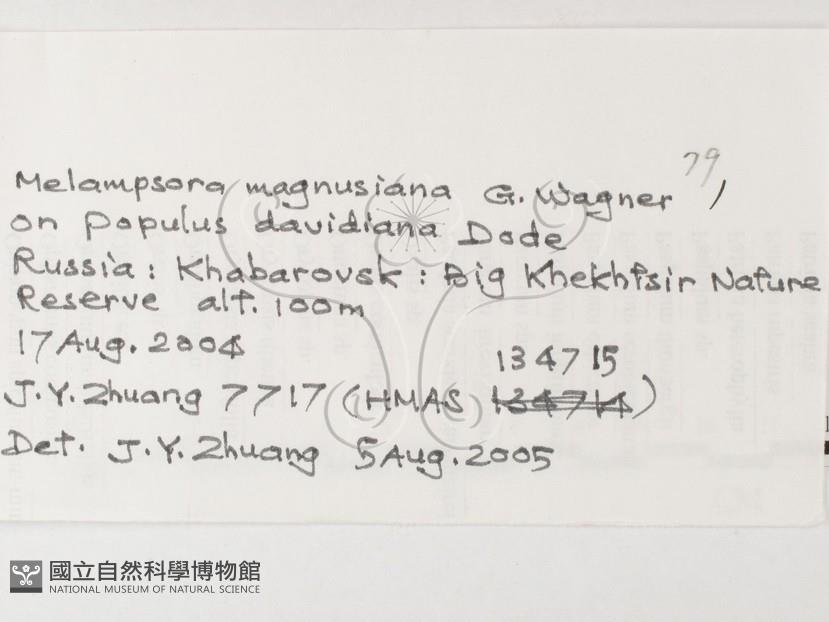 79,
Melampsora magnusiana G. Wagner
on Populus davidiana Dode
Russia: Khabarovsk: Big Khekhtsir Nature
Reserve alt. 100m
17 Aug. 2004
134715
J.Y. Zhuang 7717 (HMAS 134714)
Det. J.Y. Zhuang 5 Aug. 2005
國立自然科學博物館
NATIONAL MUSEUM OF NATURAL SCIENCE